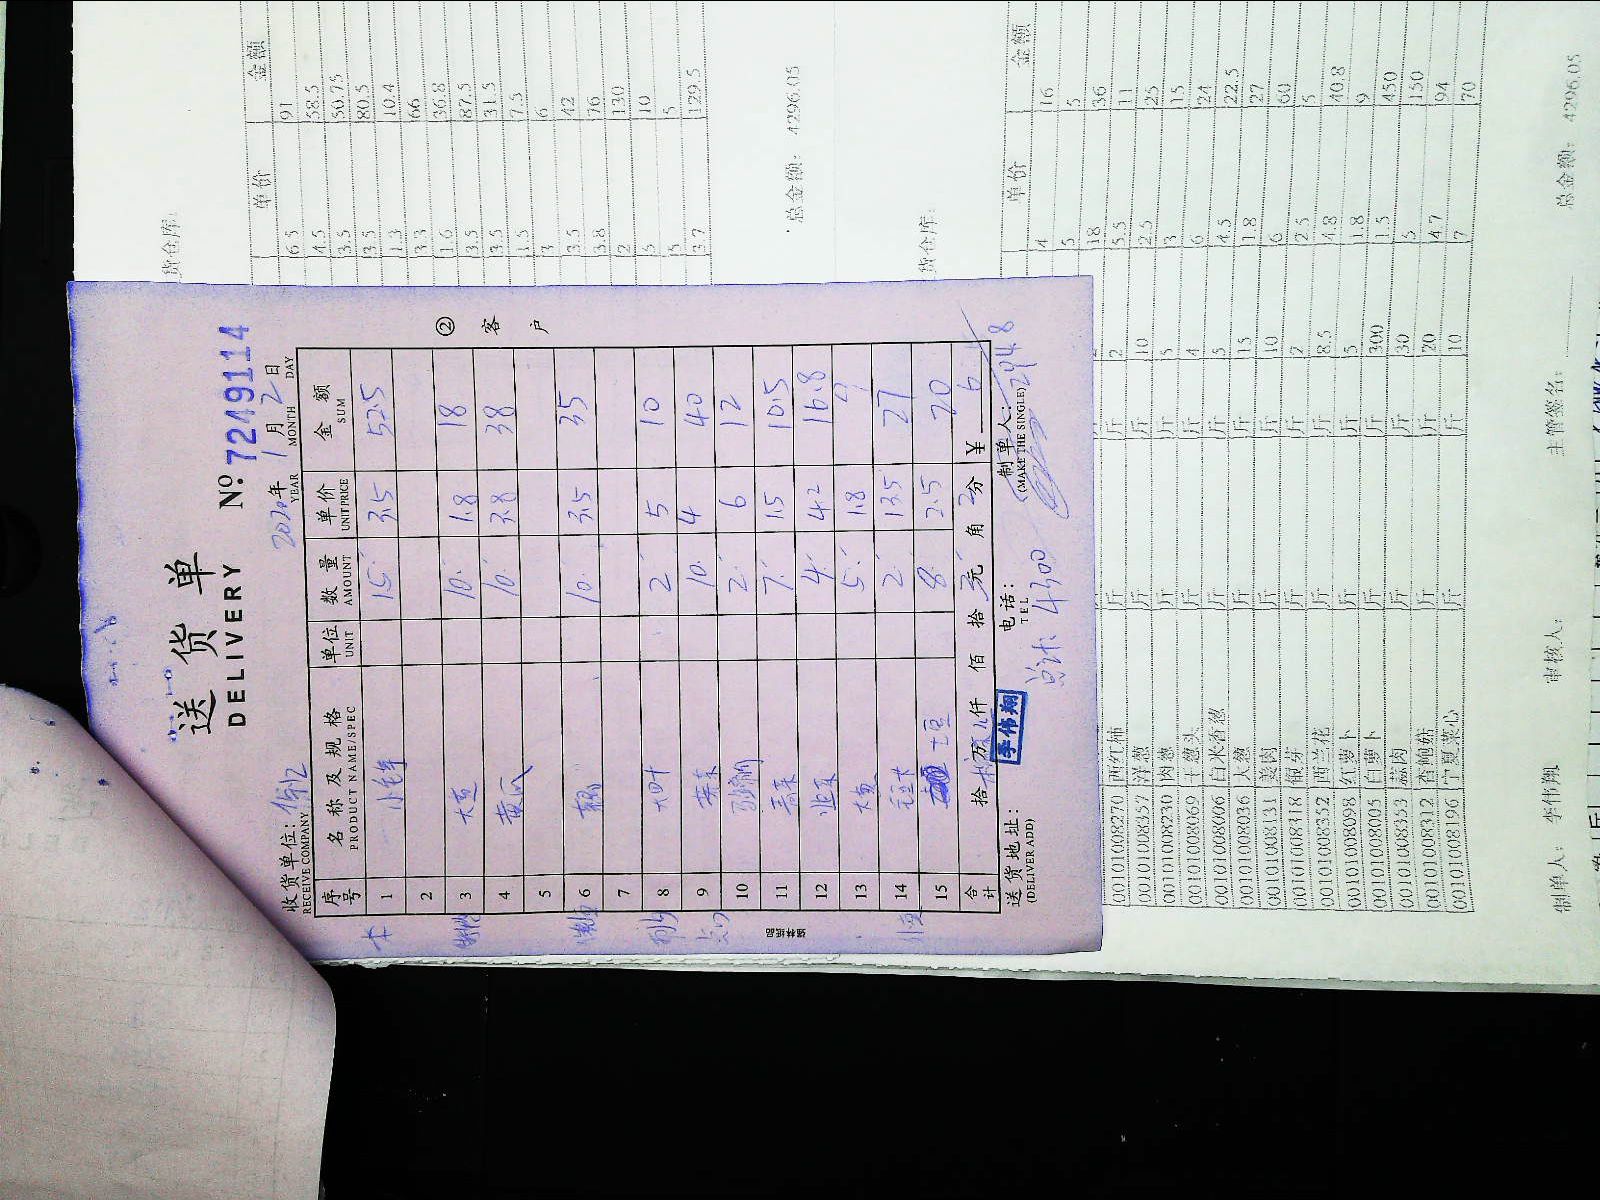 送 货 单
DELIVERY
№ 7249114
2020年 1月 2日
YEAR MONTH DAY
收货单位：
RECEIVE COMPANY
序号 名称及规格 单位 数量 单价 金额
PRODUCT NAME/SPEC UNIT AMOUNT UNIT PRICE SUM
1 15 3.5 52.5
2
3 10 1.8 18
4 黄瓜 10 3.8 38
5
6 10 3.5 35
7
8 2 5 10
9 10 4 40
10 2 6 12
11 7 1.5 10.5
12 4 4.2 16.8
13 5 1.8
14 2 13.5 27
15 土豆 8 2.5 20
合计 拾 万 仟 佰 拾 元 角 分 ¥
② 客 户
送货地址：
(DELIVER ADD)
李伟翔
电话：
TEL
制单人：
(MAKE THE SINGLE)
2948
总计: 4300
货仓库：
单价 金额
6.5 91
4.5 58.5
3.5 50.75
3.5 80.5
1.3 10.4
3.3 66
1.6 36.8
3.5 87.5
3.5 31.5
1.5 7.5
3 6
3.5 42
3.8 76
2 130
5 10
5 5
3.7 129.5
总金额： 4296.05
货仓库：
单价 金额
4 116
5 5
18 36
00101008270 西红柿 斤 2 5.5 11
00101008357 洋葱 斤 10 2.5 25
00101008230 肉葱 斤 5 3 15
00101008069 干葱头 斤 4 6 24
00101008066 白米香葱 斤 5 4.5 22.5
00101008036 大葱 斤 15 1.8 27
00101008131 姜肉 斤 10 6 60
00101008318 银芽 斤 2 2.5 5
00101008352 西兰花 斤 8.5 4.8 40.8
00101008098 红萝卜 斤 5 1.8 9
00101008005 白萝卜 斤 300 1.5 450
00101008353 蒜肉 斤 30 5 150
00101008312 杏鲍菇 斤 20 4.7 94
00101008196 宁夏菜心 斤 10 7 70
总金额： 4296.05
制单人： 李伟翔 审核人： 主管签名：